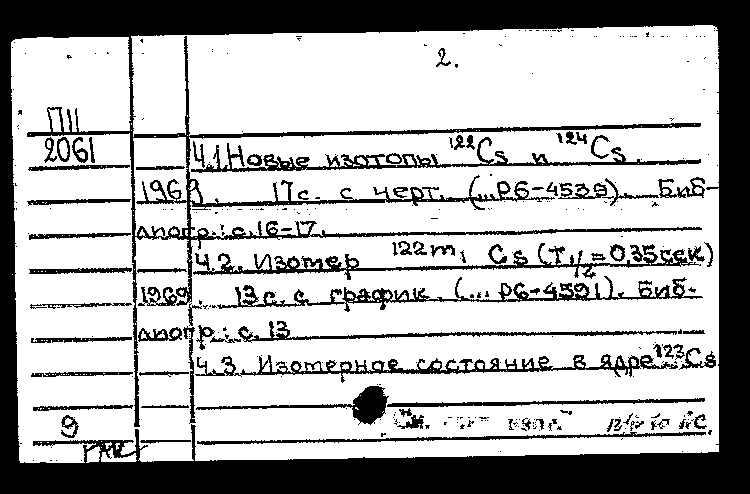 2.
П11
2061
Ч.1. Новые изотопы ¹²²Cs и ¹²⁴Cs.
1969. 17с. с черт. (...Р6-4539). Биб-
лиогр.: с.16-17.
Ч.2. Изомер ¹²²ᵐ¹ Cs (T₁/₂=0,35сек)
1969. 13с. с график. (...Р6-4591). Биб-
лиогр.: с. 13
Ч.3. Изомерное состояние в ядре ¹²³Cs
См.
9